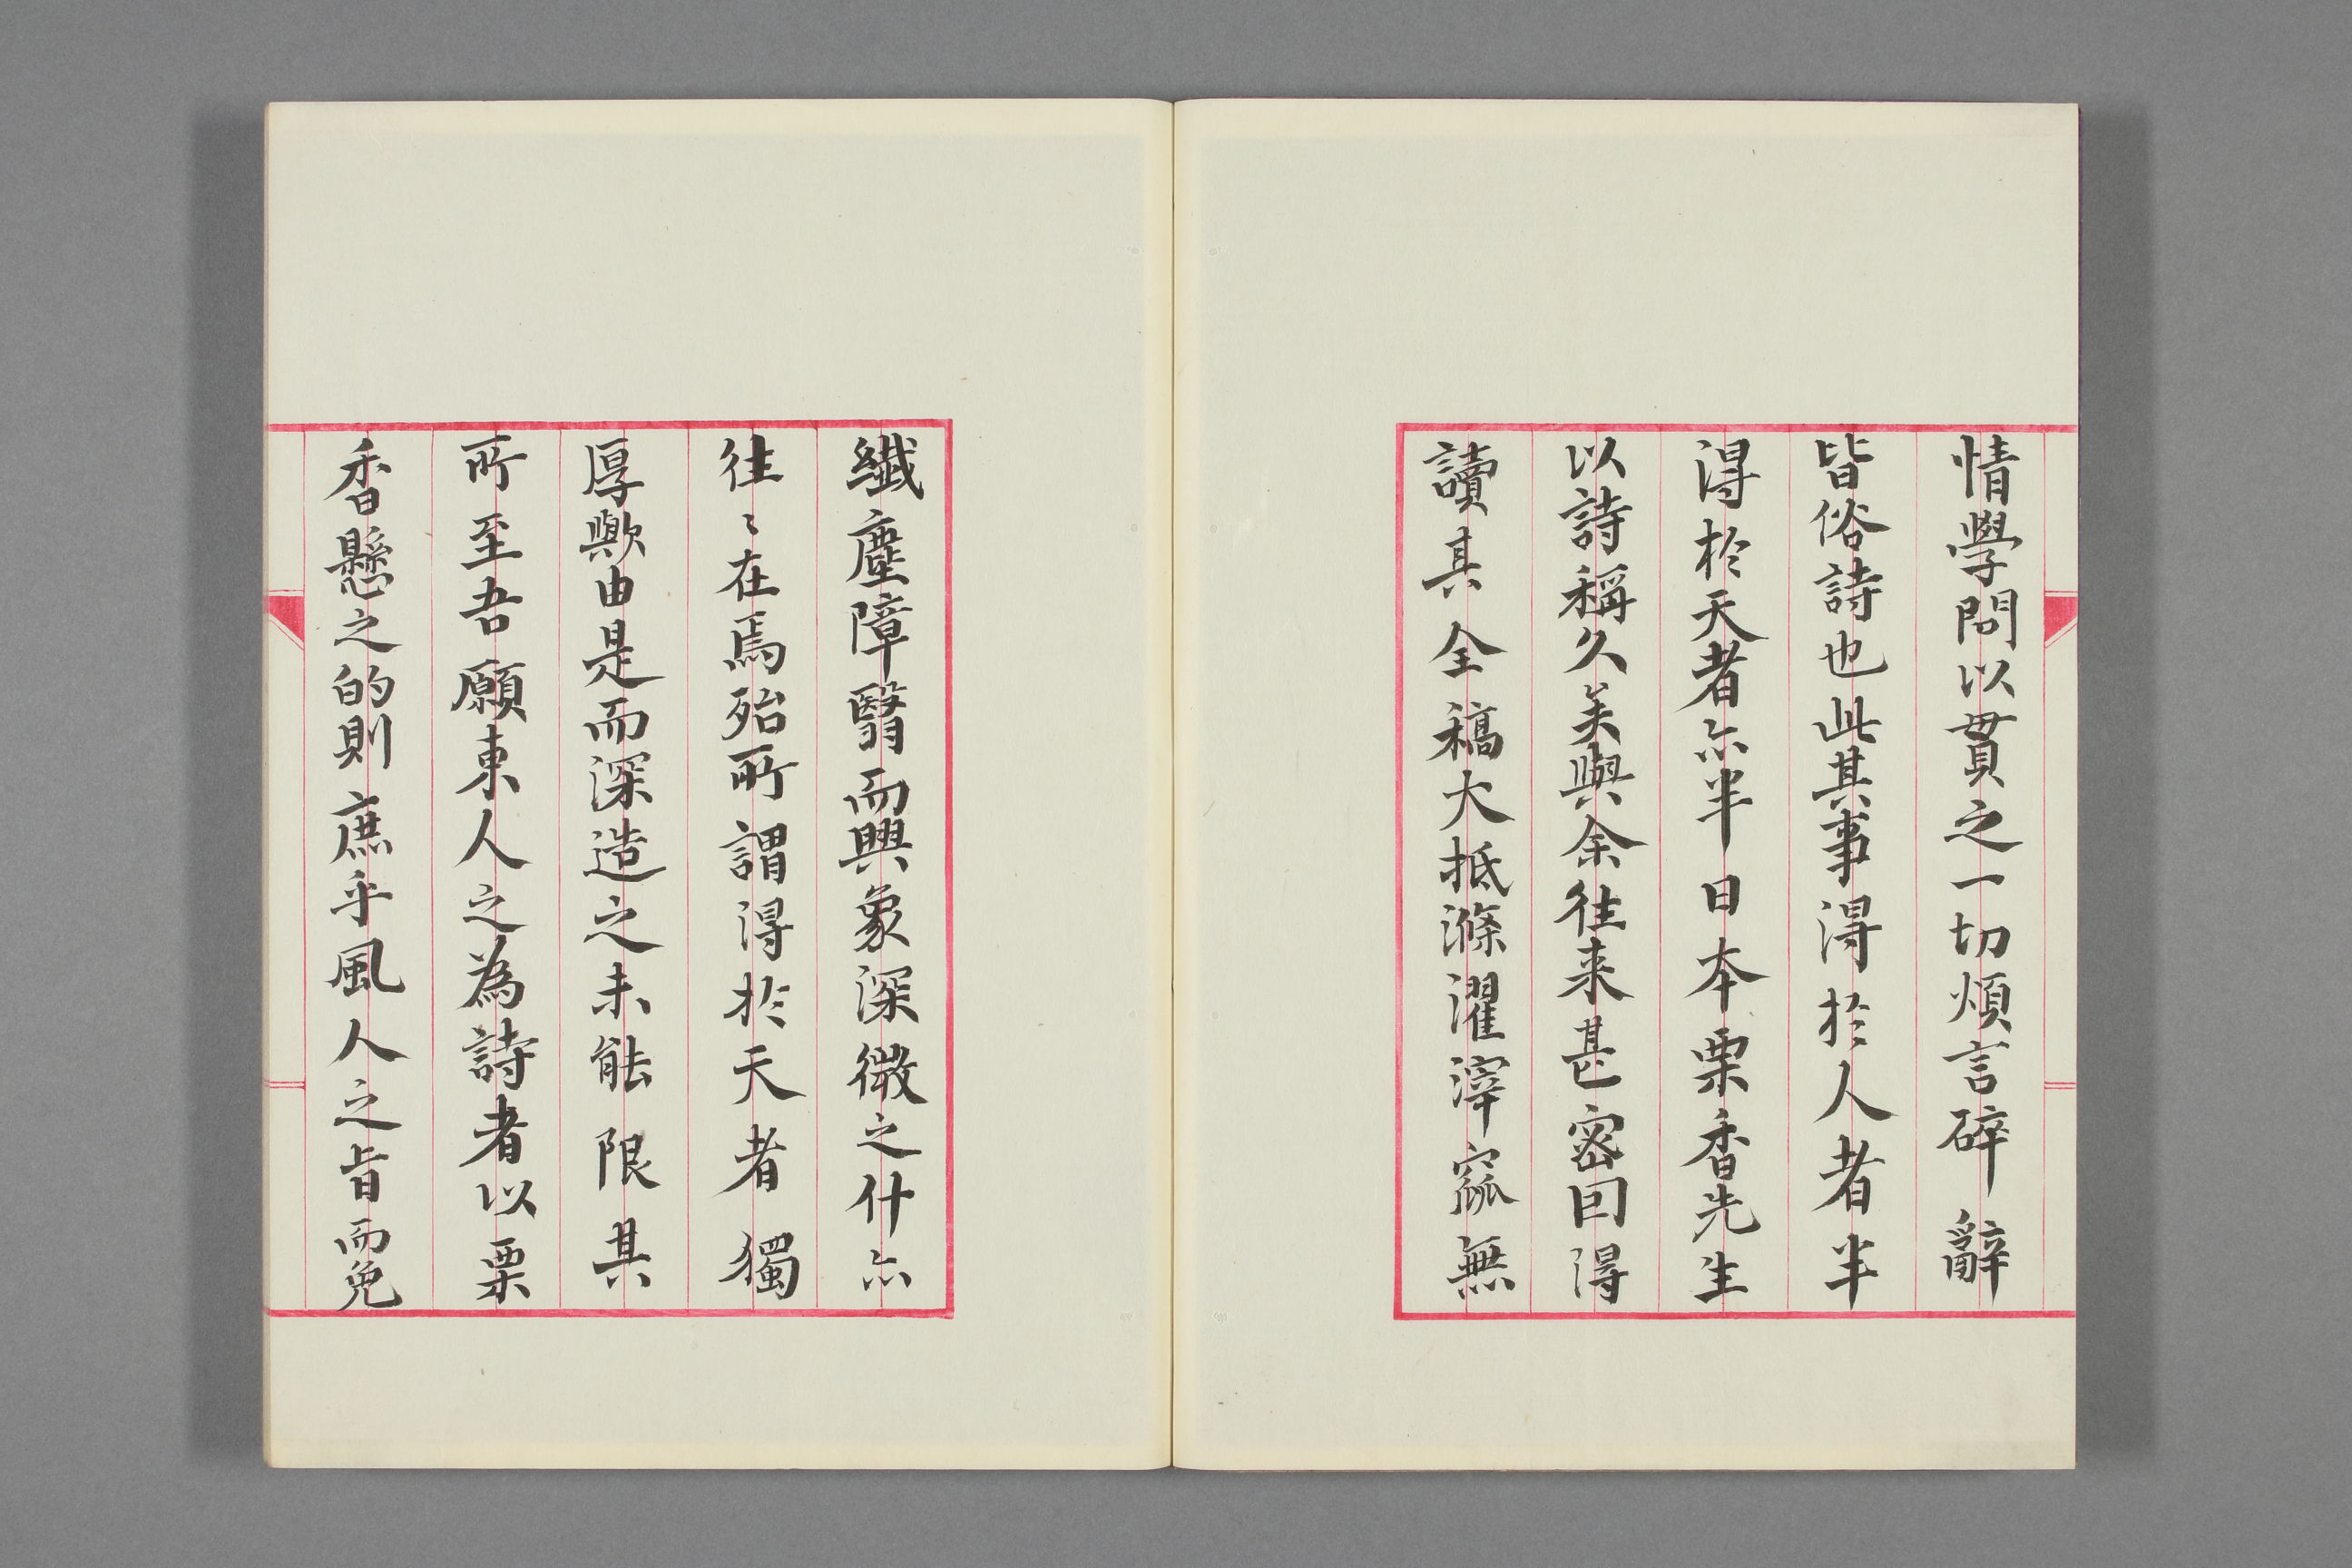 情學問以貫之一切煩言碎辭
皆俗詩也此其事得於人者半
得於天者亦半日本栗香先生
以詩稱久矣與余往来甚密囙得
讀其全稿大抵滌濯滓窳無
纖塵障翳而興象深微之什亦
往〻在焉殆所謂得於天者獨
厚歟由是而深造之未能限其
所至吾願東人之為詩者以栗
香懸之的則庶乎風人之旨而免